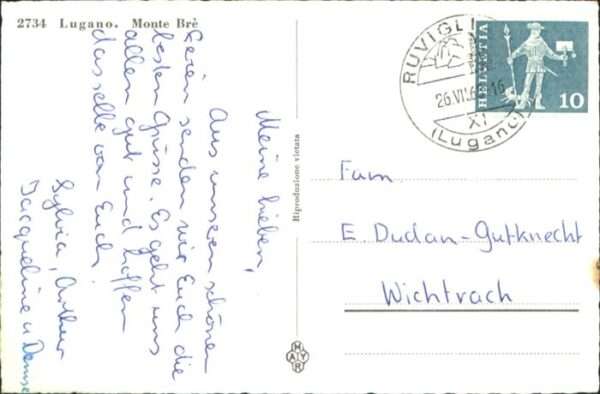 2734 Lugano. Monte Brè
Meine lieben,
Aus unsern schönen
Ferien senden wir Euch die
besten Grüsse. Es geht uns
allen gut und hoffen
dasselbe von Euch.
Sylvia, Arthur
Jacqueline u Denise
Riproduzione vietata
RUVIGLI
26.VII.6 -16
XI
(Lugano)
HELVETIA
10
Fam.
E. Dudan-Gutknecht
Wichtrach
MAYR